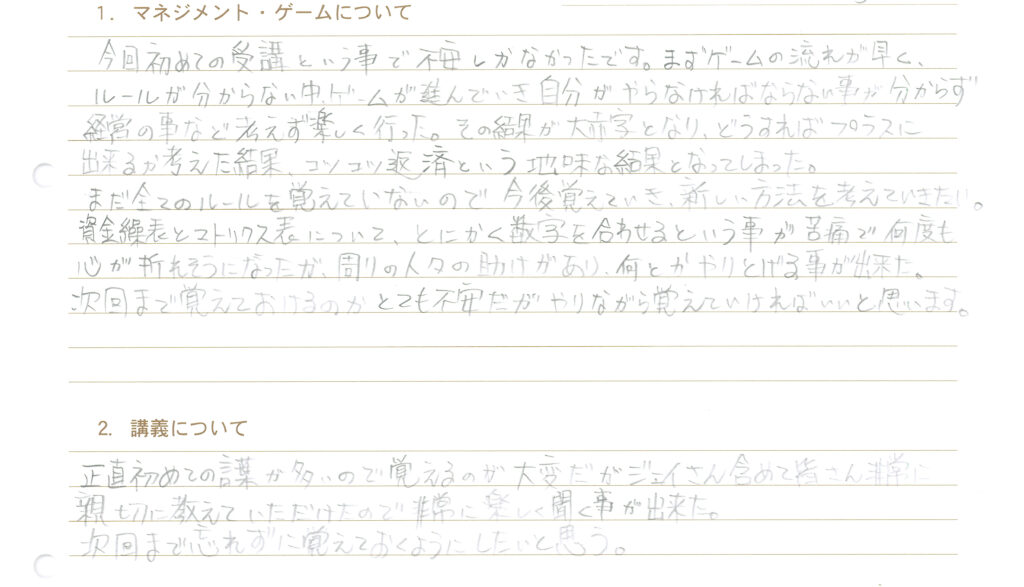 1. マネジメント・ゲームについて
今回初めての受講という事で不安しかなかったです。まずゲームの流れが早く、
ルールが分からない中、ゲームが進んでいき自分がやらなければならない事が分からず
経営の事など考えず楽しく行った。その結果が大赤字となり、どうすればプラスに
出来るか考えた結果、コツコツ返済という地味な結果となってしまった。
まだ全てのルールを覚えていないので今後覚えていき、新しい方法を考えていきたい。
資金繰表とマトリックス表について、とにかく数字を合わせるという事が苦痛で何度も
心が折れそうになったが、周りの人々の助けがあり、何とかやりとげる事が出来た。
次回まで覚えておけるのかとても不安だがやりながら覚えていければいいと思います。
2. 講義について
正直初めての言葉が多いので覚えるのが大変だがジェイさん含めて皆さん非常に
親切に教えていただけたので非常に楽しく聞く事が出来た。
次回まで忘れずに覚えておくようにしたいと思う。